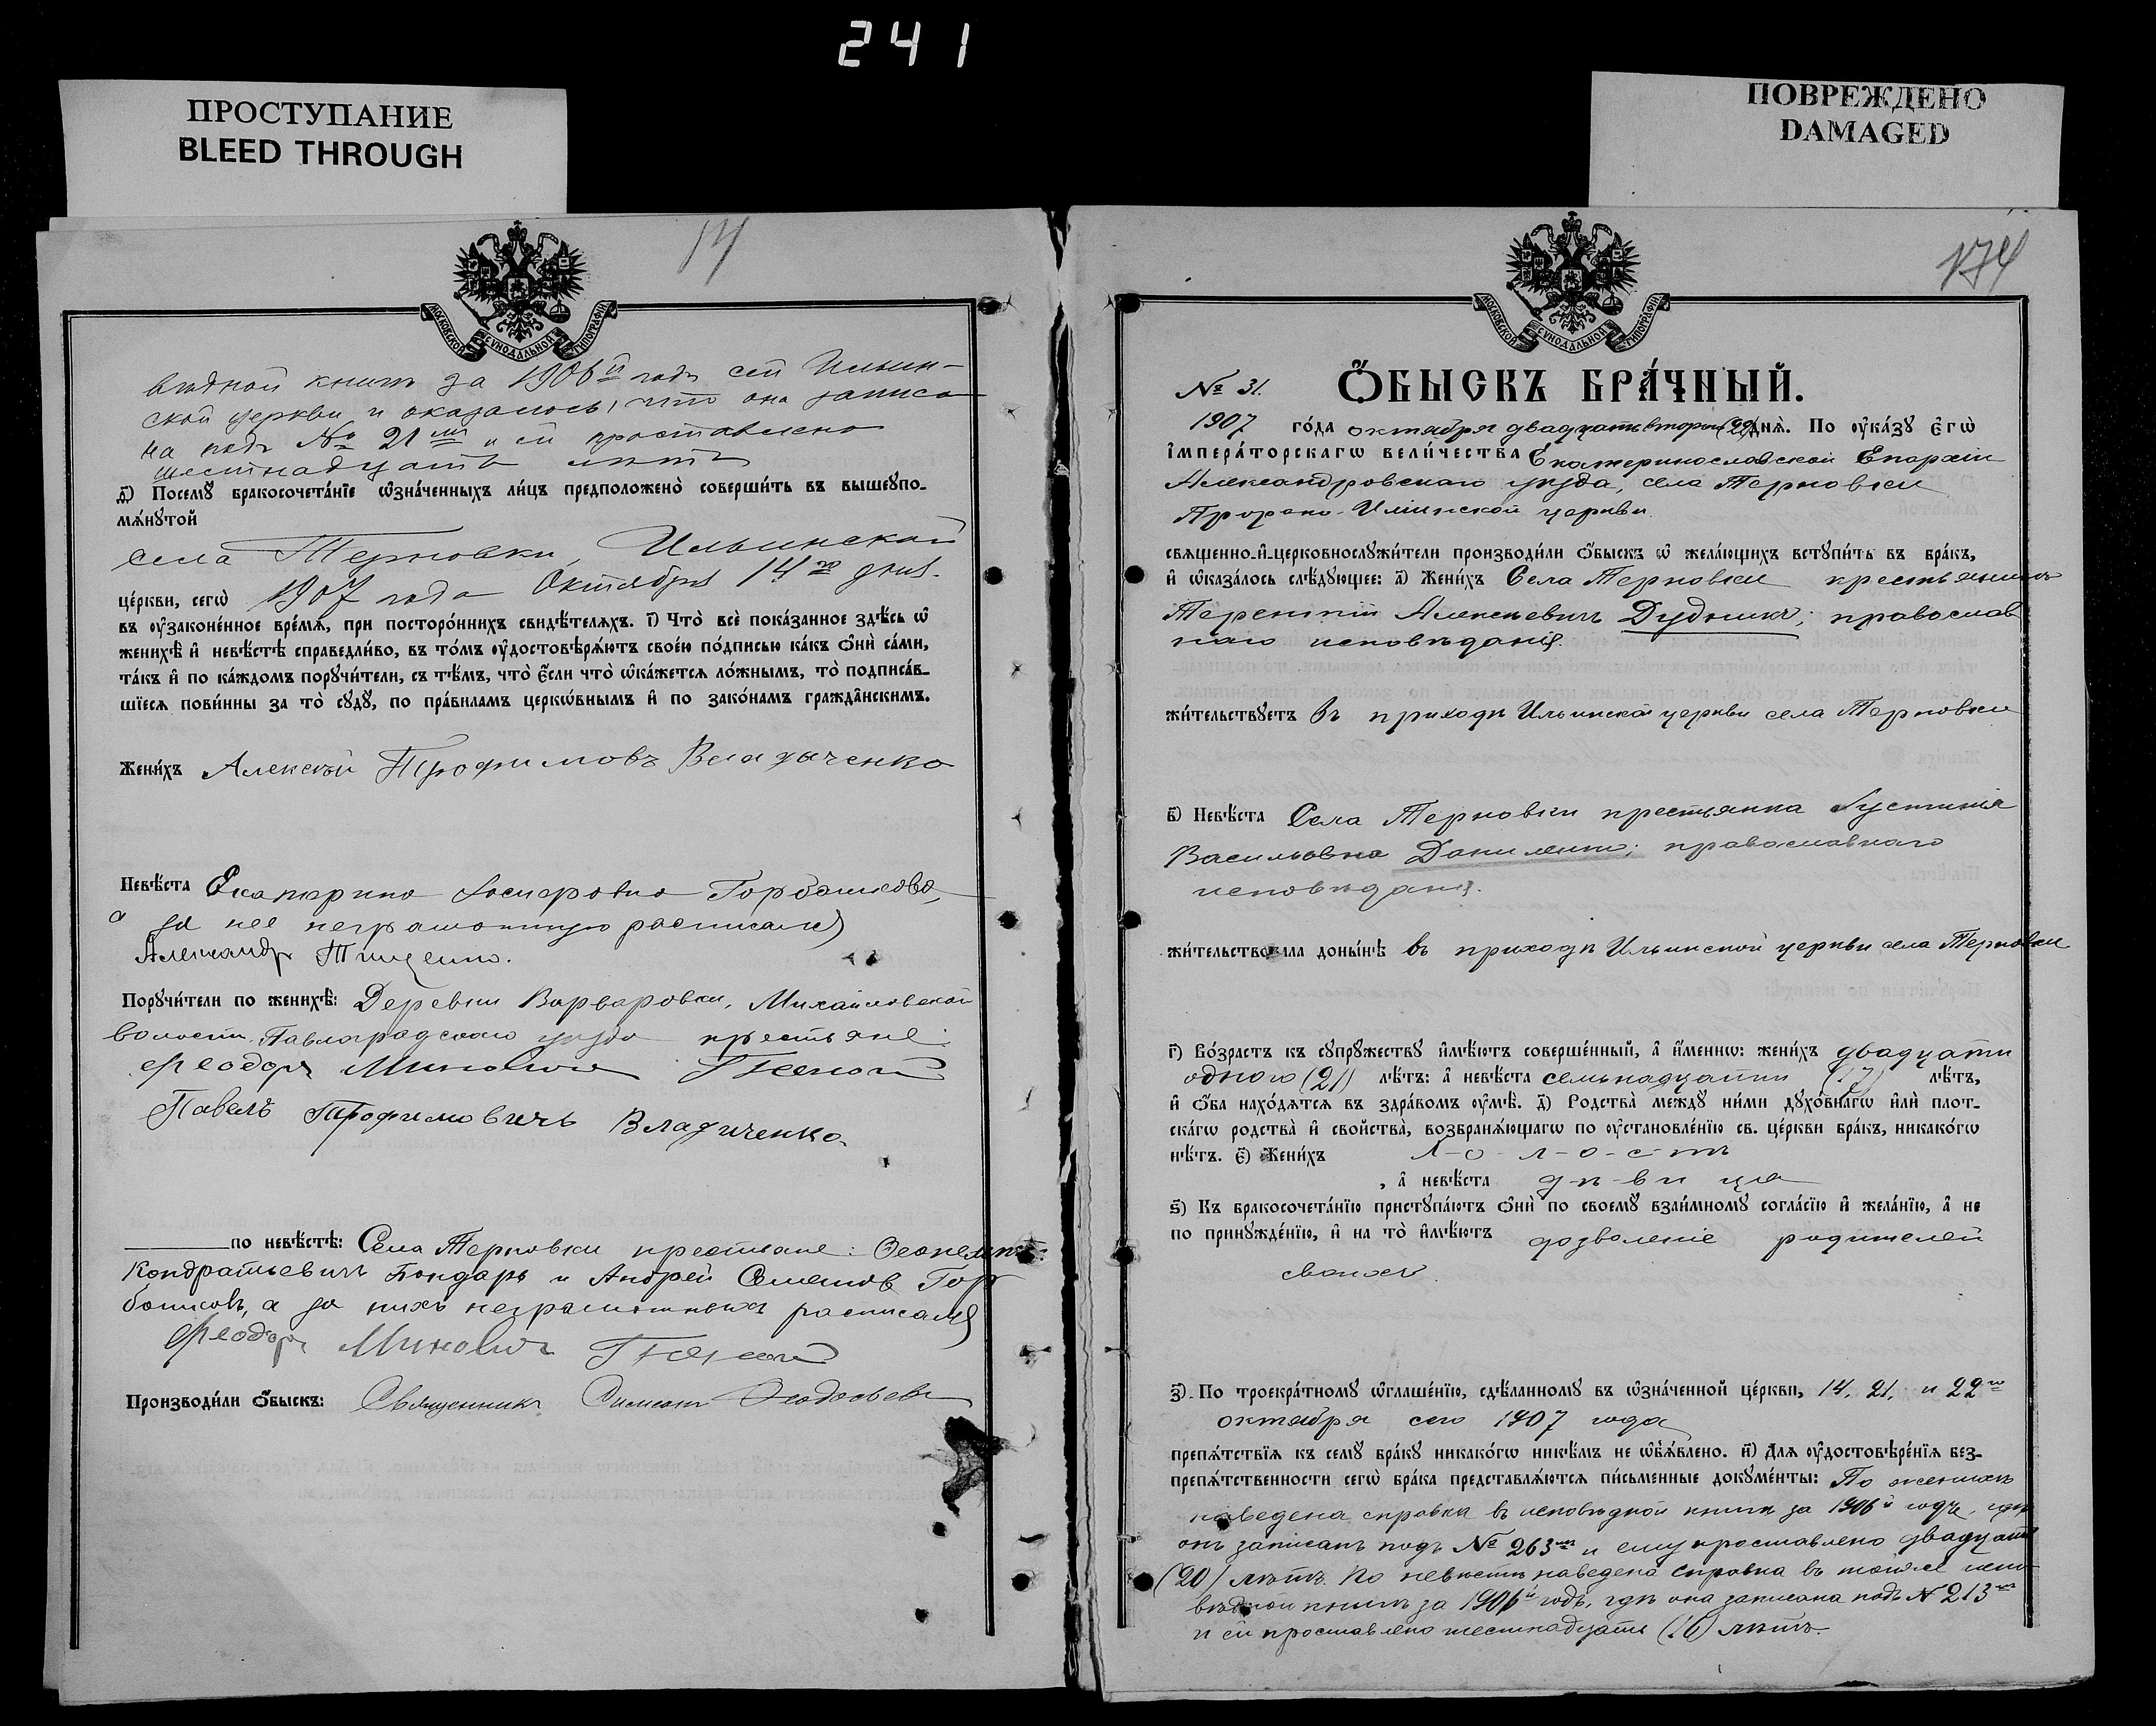 241
ПРОСТУПАНИЕ
BLEED THROUGH
ПОВРЕЖДЕНО
DAMAGED
МОСКОВСКОЙ СѴНОДАЛЬНОЙ ТИПОГРАФІИ
вѣдной книгѣ за 1906й годъ сей Ильин-
ской церкви и оказалось, что она записа
на подъ № 21мъ и ей проставлено
шестнадцать лѣтъ
д҃) Посемꙋ̀ бракосочета́нїе ѡ҆зна́ченныхъ ли́цъ предположено̀ соверши́ть въ вышеꙋпо-
мѧ́нꙋтой
села Терновки, Ильинской
це́ркви, сегѡ̀ 1907 года Октября 14го дня.
въ ᲂу҆законе́нное вре́мѧ, при посторо́ннихъ свидѣ́телѧхъ. і҃) Что̀ всѐ пока́занное здѣ́сь ѡ҆
женихѣ̀ и҆ невѣ́стѣ справедли́во, въ то́мъ ᲂу҆достовѣрѧ́ютъ свое́ю по́дписью ка́къ ѻ҆нѝ са́ми,
та́къ и҆ по ка́ждомъ порꙋчи́тели, съ тѣ́мъ, что̀ є҆́сли что̀ ѡ҆ка́жетсѧ ло́жнымъ, то̀ подписа́в-
шїесѧ пови́нны за то̀ сꙋдꙋ̀, по пра́виламъ церкѡ́внымъ и҆ по зако́намъ гражда́нскимъ.
Жени́хъ Алексѣй Трофимовъ Владыченко
Невѣ́ста Екатерина Горбашкова,
а за нее неграмотную расписался
Александръ Тищенко.
Порꙋчи́тели по женихѣ̀: Деревни Варваровки, Михайловской
волости, Павлоградскаго уѣзда крестьяне:
Феодоръ
Павелъ Трофимовичъ Владиченко
по невѣ́стѣ: Села Терновки крестьяне:
Кондратьевичъ Бондарь и Андрей Семеновъ Гор
башковъ, а за нихъ неграмотныхъ расписался
Феодоръ
Производи́ли ѻ҆́быскъ: Священникъ Симеонъ
174
МОСКОВСКОЙ СѴНОДАЛЬНОЙ ТИПОГРАФІИ
№ 31. Ѻ҆́БЫСКЪ БРА́ЧНЫЙ.
1907 го́да октября двадцать второго (22) днѧ̀. По ᲂу҆ка́зꙋ є҆гѡ̀
і҆мпера́торскагѡ вели́чества Екатеринославской Епархіи
Александровскаго уѣзда, села Терновки
Пророко-Илiинской церкви
свѧщенно-и҆-церковнослꙋжи́тели производи́ли ѻ҆́быскъ ѡ҆ жела́ющихъ встꙋпи́ть въ бра́къ,
и҆ ѡ҆каза́лось слѣ́дꙋющее: а҃) Жени́хъ Села Терновки крестьянинъ
Терентій Алексѣевичъ Дудникъ; православ
наго исповѣданія.
жи́тельствꙋетъ въ приходѣ Ильинской церкви села Терновки
в҃) Невѣ́ста Села Терновки крестьянка Іустинія
Васильевна Даниленко; православнаго
исповѣданія.
жи́тельствовала доны́нѣ въ приходѣ Ильинской церкви села Терновки
г҃) Во́зрастъ къ сꙋпрꙋ́жествꙋ и҆мѣ́ютъ соверше́нный, а҆ и҆́меннѡ: жени́хъ двадцати
одного (21) лѣ́тъ: а҆ невѣ́ста семьнадцати (17) лѣ́тъ,
и҆ ѻ҆́ба нахо́дѧтсѧ въ здра́вомъ ᲂу҆мѣ̀. д҃) Родства̀ междꙋ̀ ни́ми дꙋхо́внагѡ и҆лѝ плот-
ска́гѡ родства̀ и҆ свойства̀, возбранѧ́ющагѡ по ᲂу҆становле́нїю св. це́ркви бра́къ, никако́гѡ
нѣ́тъ. є҃) Жени́хъ х-о-л-о-с-тъ
, а҆ невѣ́ста д-ѣ-ви ца
ѕ҃) Къ бракосочета́нїю пристꙋпа́ютъ ѻ҆нѝ по своемꙋ̀ взаи́мномꙋ согла́сїю и҆ жела́нїю, а҆ не
по принꙋжде́нїю, и҆ на то̀ и҆мѣ́ютъ дозволеніе родителей
своихъ.
з҃) По троекра́тномꙋ ѡ҆глаше́нїю, сдѣ́ланномꙋ въ ѡ҆зна́ченной це́ркви, 14, 21, и 22го
октября сего 1907 года
препѧ́тствїѧ къ семꙋ̀ бра́кꙋ никако́гѡ никѣ́мъ не ѡ҆б̾ѧ́влено. и҃) Длѧ ᲂу҆достовѣре́нїѧ без-
препѧ́тственности сегѡ̀ бра́ка представлѧ́ютсѧ пи́сьменные докꙋме́нты: По женихѣ
наведена справка въ исповѣдной книгѣ за 1906й годъ, гдѣ
онъ записанъ подъ № 263мъ и ему проставлено двадцать
(20) лѣтъ. По невѣстѣ наведена справка въ той же испо
вѣдной книгѣ за 1906й годъ, гдѣ она записана подъ № 213мъ
и ей проставлено шестнадцать (16) лѣтъ.